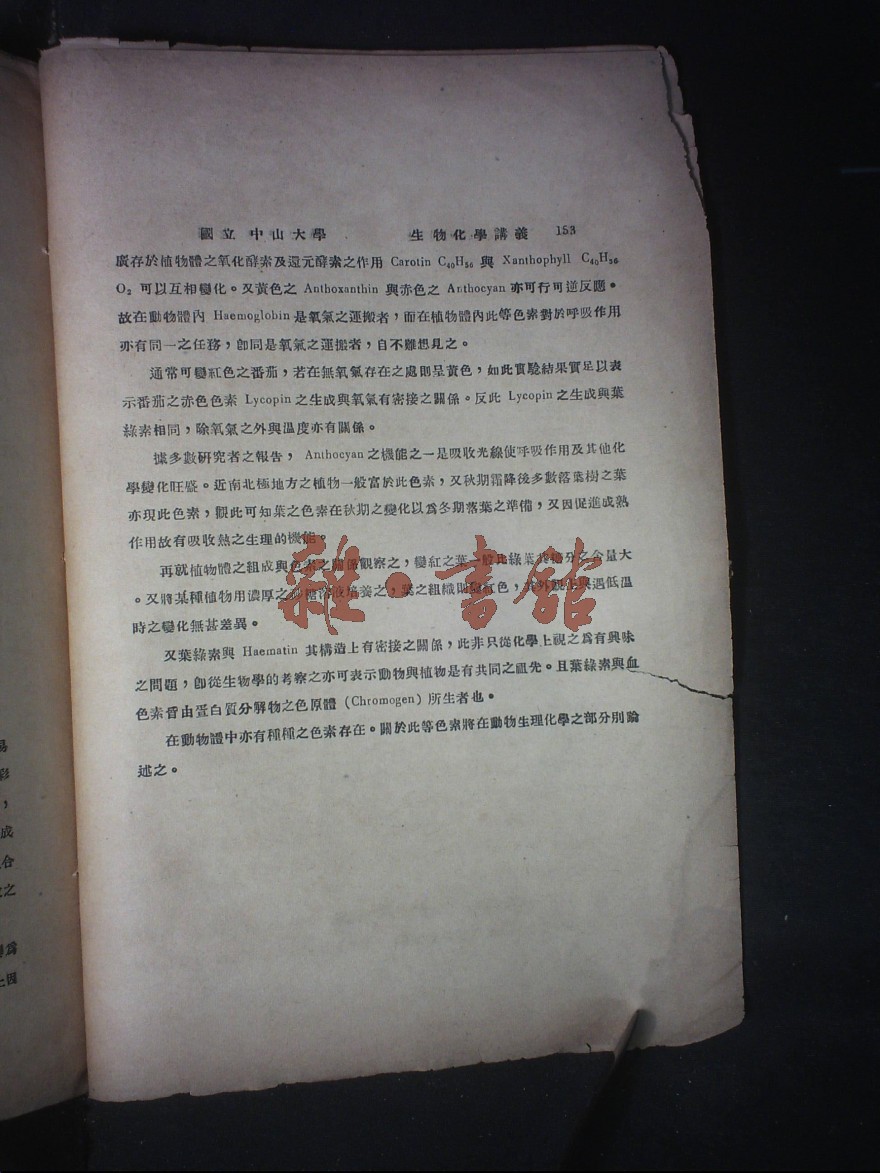 國立中山大學 生物化學講義 153
廣存於植物體之氧化酵素及還元酵素之作用 Carotin C₄₀H₅₆ 與 Xanthophyll C₄₀H₅₆
O₂ 可以互相變化。又黃色之 Anthoxanthin 與赤色之 Anthocyan 亦可行可逆反應。
故在動物體內 Haemoglobin 是氧氣之運搬者，而在植物體內此等色素對於呼吸作用
亦有同一之任務，卽同是氧氣之運搬者，自不難想見之。
通常可變紅色之番茄，若在無氧氣存在之處則呈黃色，如此實驗結果實足以表
示番茄之赤色色素 Lycopin 之生成與氧氣有密接之關係。反此 Lycopin 之生成與葉
綠素相同，除氧氣之外與溫度亦有關係。
據多數硏究者之報告， Anthocyan 之機能之一是吸收光線使呼吸作用及其他化
學變化旺盛。近南北極地方之植物一般富於此色素，又秋期霜降後多數落葉樹之葉
亦現此色素，觀此可知葉之色素在秋期之變化以爲冬期落葉之準備，又因促進成熟
作用故有吸收熱之生理的機能。
再就植物體之組成與色素之關係觀察之，變紅之葉一般比綠葉糖分之含量大
。又將某種植物用濃厚之砂糖溶液培養之，葉之組織則變紅色，其外觀與遇低溫
時之變化無甚差異。
又葉綠素與 Haematin 其構造上有密接之關係，此非只從化學上視之爲有興味
之問題，卽從生物學的考察之亦可表示動物與植物是有共同之祖先。且葉綠素與血
色素皆由蛋白質分解物之色原體 (Chromogen) 所生者也。
在動物體中亦有種種之色素存在。關於此等色素將在動物生理化學之部分別論
述之。
雜·書館
易
彩
，
成
合
之
爲
因